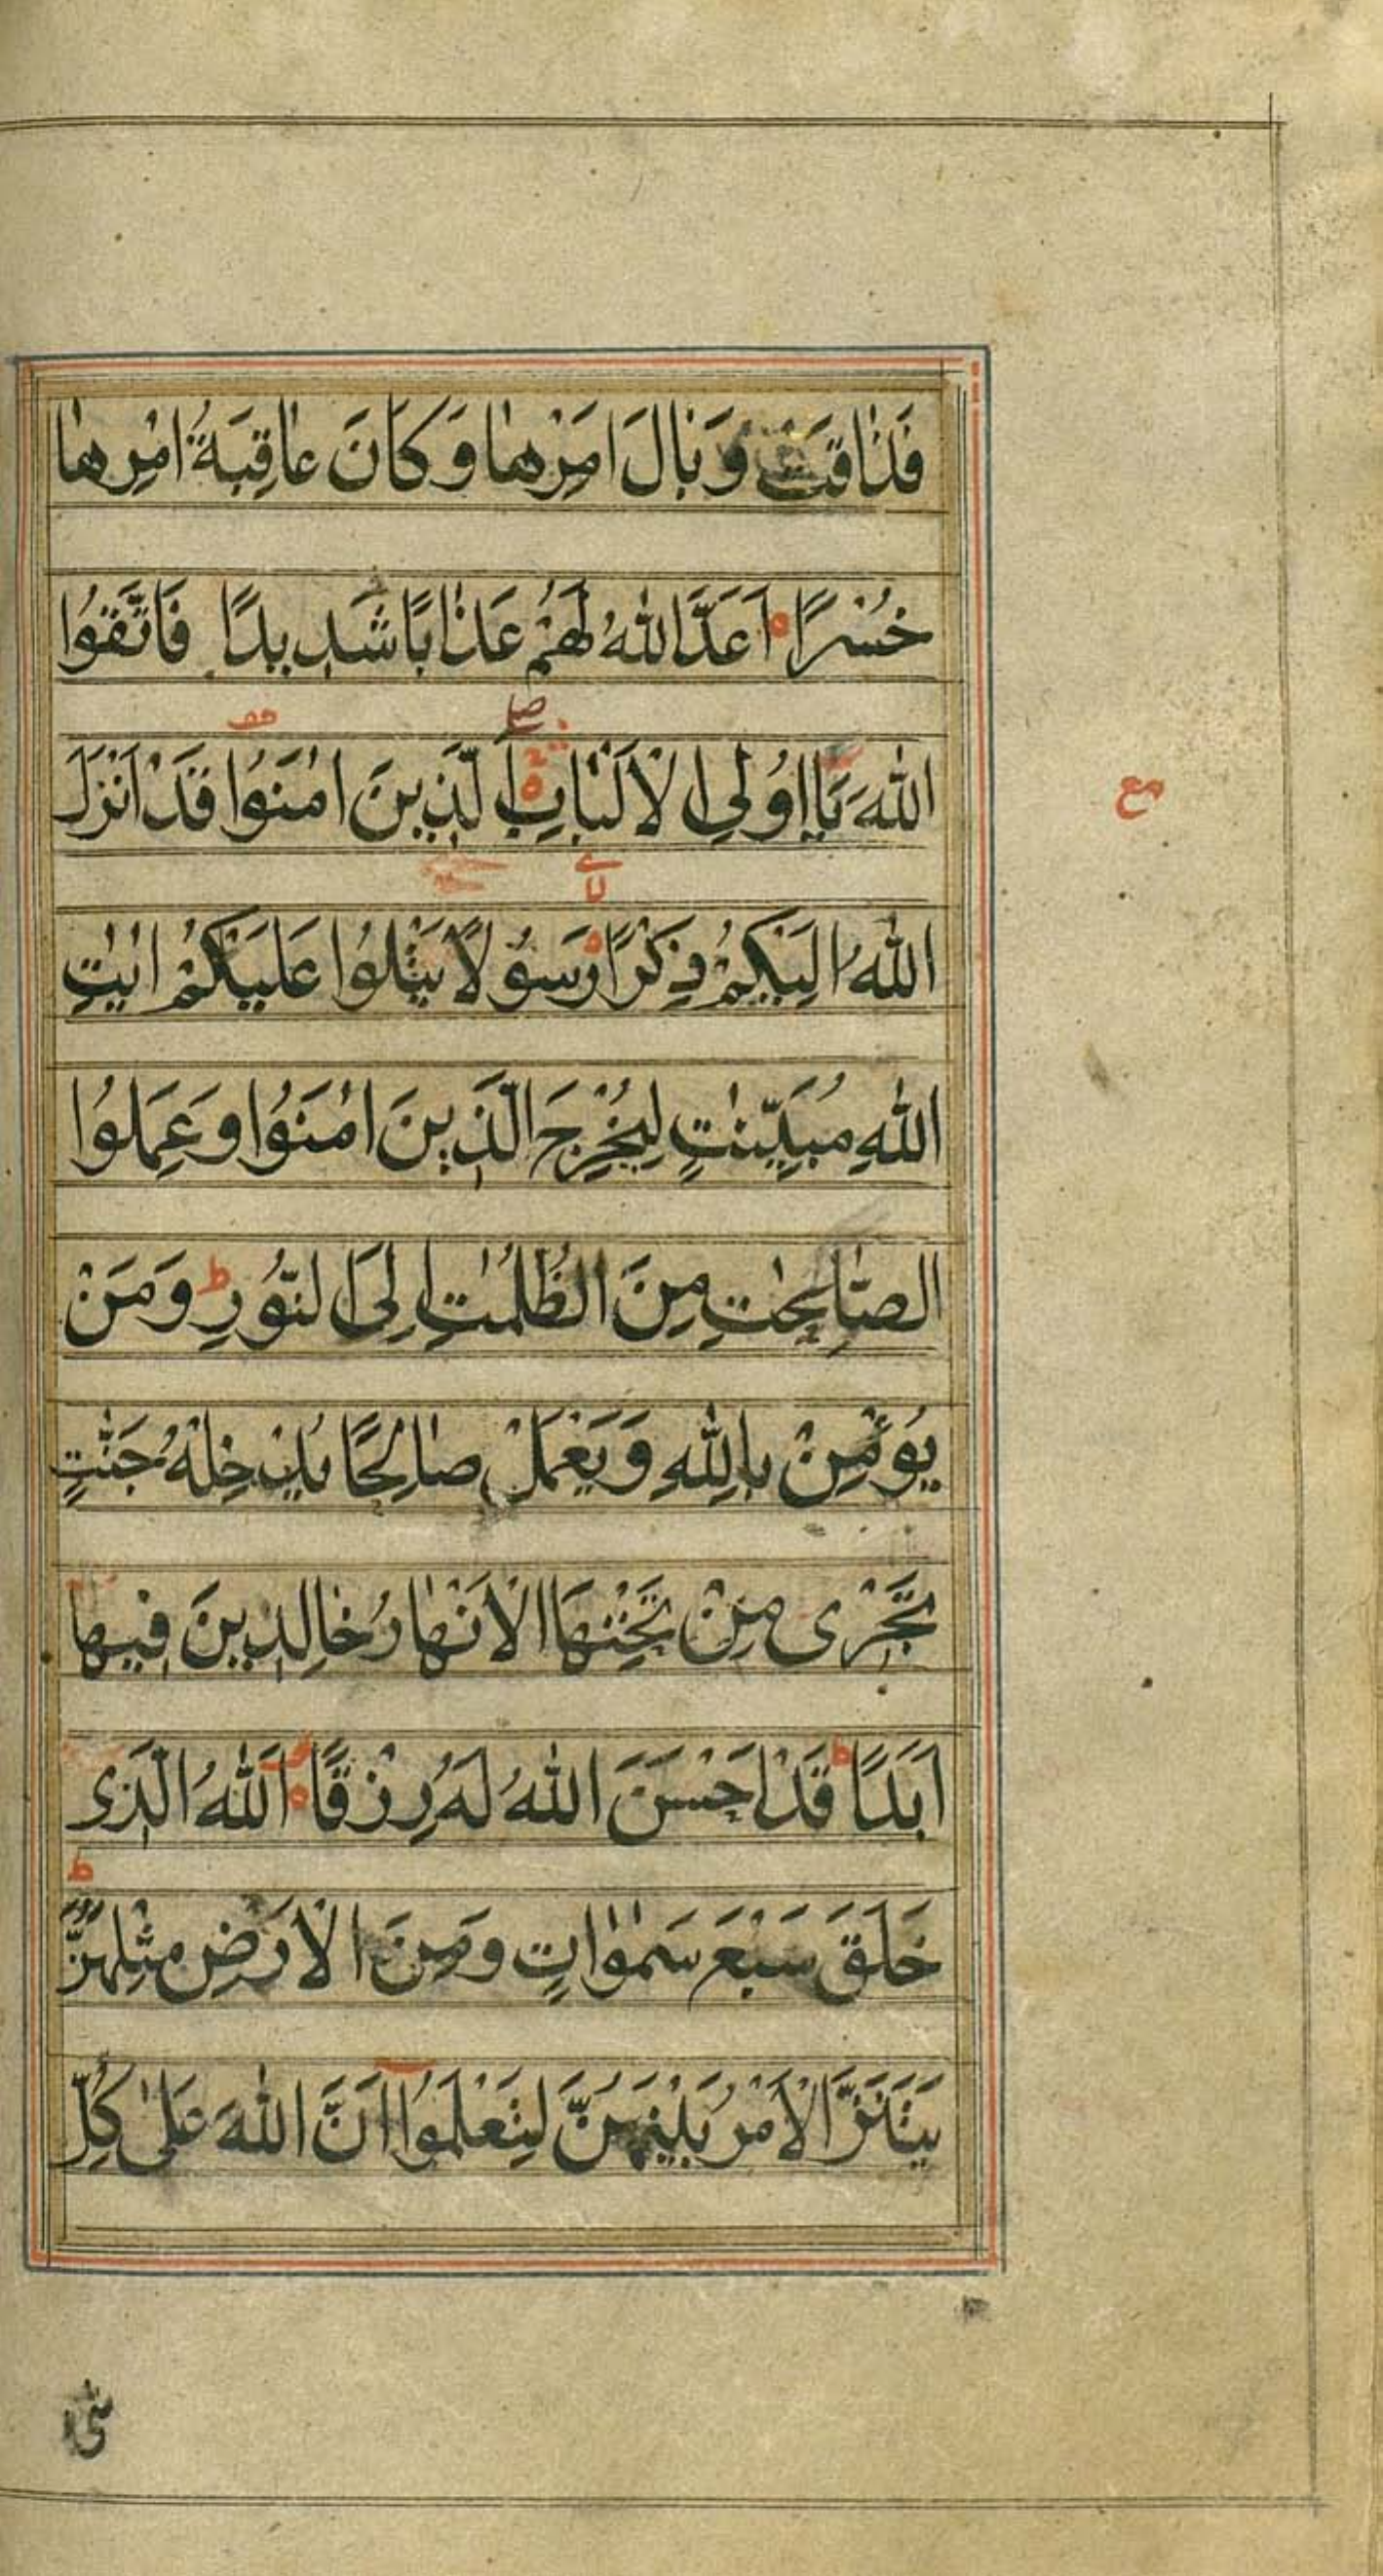 فَذٰاقَتْ وَبٰالَ اَمْرِهٰا وَكٰانَ عٰاقِبَةُ اَمْرِهٰا
خُسْرًا اَعَدَّ اللّٰهُ لَهُمْ عَذٰابًا شَدِيدًا فَاتَّقُوا
اللّٰهَ يٰۤا اُولِى الْاَلْبٰابِ اَلَّذِينَ اٰمَنُوا قَدْ اَنْزَلَ
مع
اللّٰهُ اِلَيْكُمْ ذِكْرًا رَسُولًا يَتْلُوا عَلَيْكُمْ اٰيٰتِ
اللّٰهِ مُبَيِّنٰتٍ لِيُخْرِجَ الَّذِينَ اٰمَنُوا وَعَمِلُوا
الصّٰالِحٰتِ مِنَ الظُّلُمٰتِ اِلَى النُّورِ ط وَمَنْ
يُؤْمِنْ بِاللّٰهِ وَيَعْمَلْ صٰالِحًا يُدْخِلْهُ جَنّٰتٍ
تَجْرِى مِنْ تَحْتِهَا الْاَنْهٰارُ خٰالِدِينَ فِيهٰا
اَبَدًا ط قَدْ اَحْسَنَ اللّٰهُ لَهُ رِزْقًا اَللّٰهُ الَّذِى
خَلَقَ سَبْعَ سَمٰوٰاتٍ وَمِنَ الْاَرْضِ مِثْلَهُنَّ ط
يَتَنَزَّلُ الْاَمْرُ بَيْنَهُنَّ لِتَعْلَمُوۤا اَنَّ اللّٰهَ عَلٰى كُلِّ
شَىْ